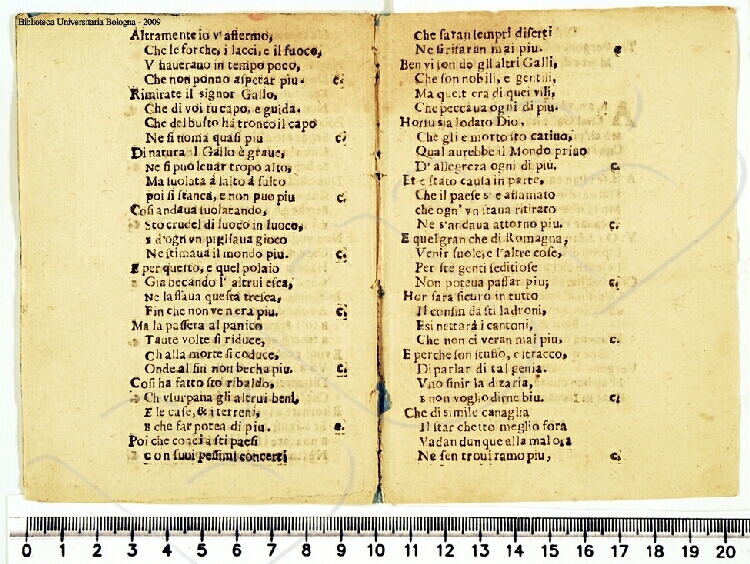 Biblioteca Universitaria Bologna - 2009
Altramente io v'affermo,
Che le forche, i lacci, e il fuoco,
V hauerano in tempo poco,
Che non ponno aspetar piu. c.
Rimirate il signor Gallo,
Che di voi fu capo, e guida.
Che del busto hà tronco il capo
Ne si noma quasi piu c.
Di natura il Gallo è graue,
Ne si può leuar tropo alto,
Ma luolata à salto à salto
poi si stanca, e non puo piu c.
Cosi andaua suolatando,
Sto crudel di luoco in luoco,
E d'ogn vn pigliaua gioco
Ne stimaua il mondo piu. c.
E per questo, e quel polaio
Gia beccando l'altrui esca,
Ne lassaua questa tresca,
Fin che non ve n'era piu. c.
Ma la passera al panico
Tante volte si riduce,
Ch alla morte si coduce,
Onde al fin non becha piu. c.
Cosi ha fatto sto ribaldo,
Ch vsurpana gli altrui beni,
E le case, & i terreni,
E che far potea di piu. c.
Poi che conci à sti paesi
con suoi pessimi concerti
Che saran sempri diserti
Ne si rifaran mai piu. c
Ben vi son do gli altri Galli,
Che son nobili, e gentili,
Ma quest era di quei vili,
Che peccaua ogni di piu.
Hor sù sia lodato Dio,
Che gli e morto sto catiuo,
Qual aurebbe il Mondo priuo
D'allegreza ogni di piu. c.
Et e stato causa in parte,
Che il paese s'e affamato
che ogn' vn staua ritirato
Ne s'andaua attorno piu. c.
E quel gran che di Romagna,
Venir suole, e l'altre cose,
Per ste genti seditiose
Non poteua passar piu; c.
Hor sarà sicuro in tutto
Il confin da sti ladroni,
E si nettarà i cantoni,
Che non ci veran mai piu, c.
E perche son stuffo, e stracco,
Di parlar di tal genia.
Vuo finir la dizaria,
E non voglio dirne biu. c.
Che di simile canaglia
Il star chetto meglio fora
Vadan dunque alla malora
Ne sen troui ramo piu, c.
0 1 2 3 4 5 6 7 8 9 10 11 12 13 14 15 16 17 18 19 20